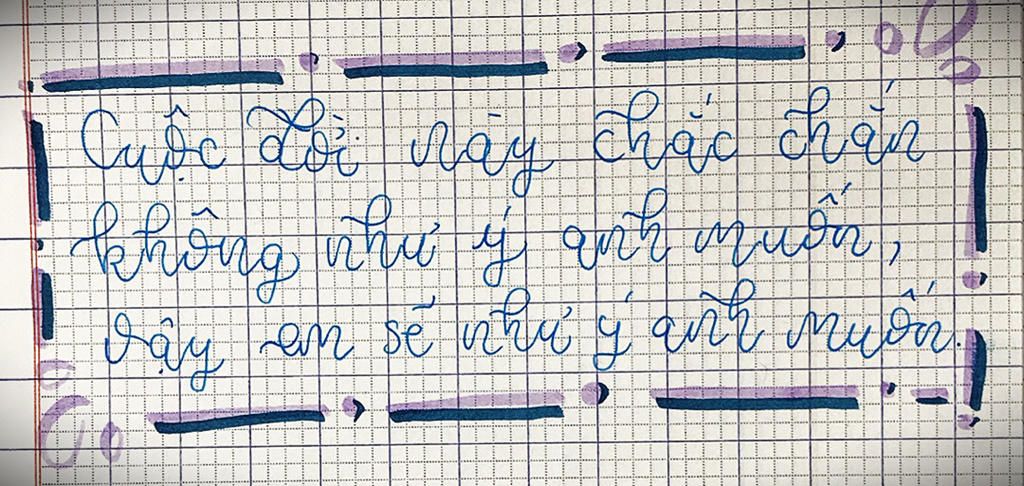 Cuộc đời này chắc chắn
không như ý anh muốn,
vậy em sẽ như ý anh muốn.